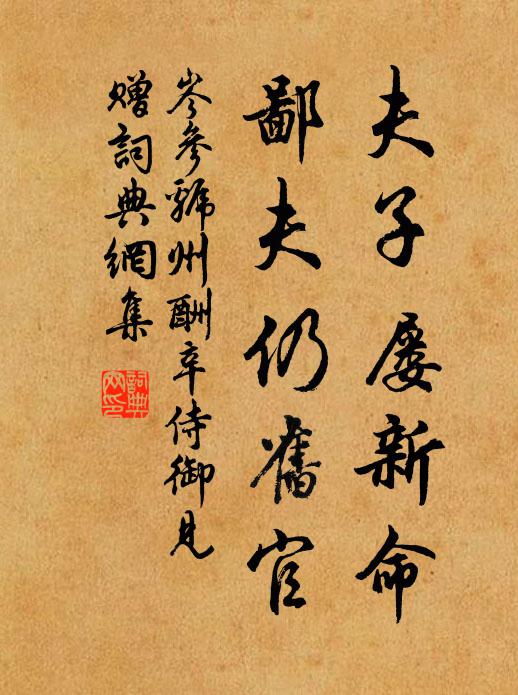 夫子屡新命
鄙夫仍舊官
岑參虢州酬辛侍御見
贈詞典網集
詞典
网印